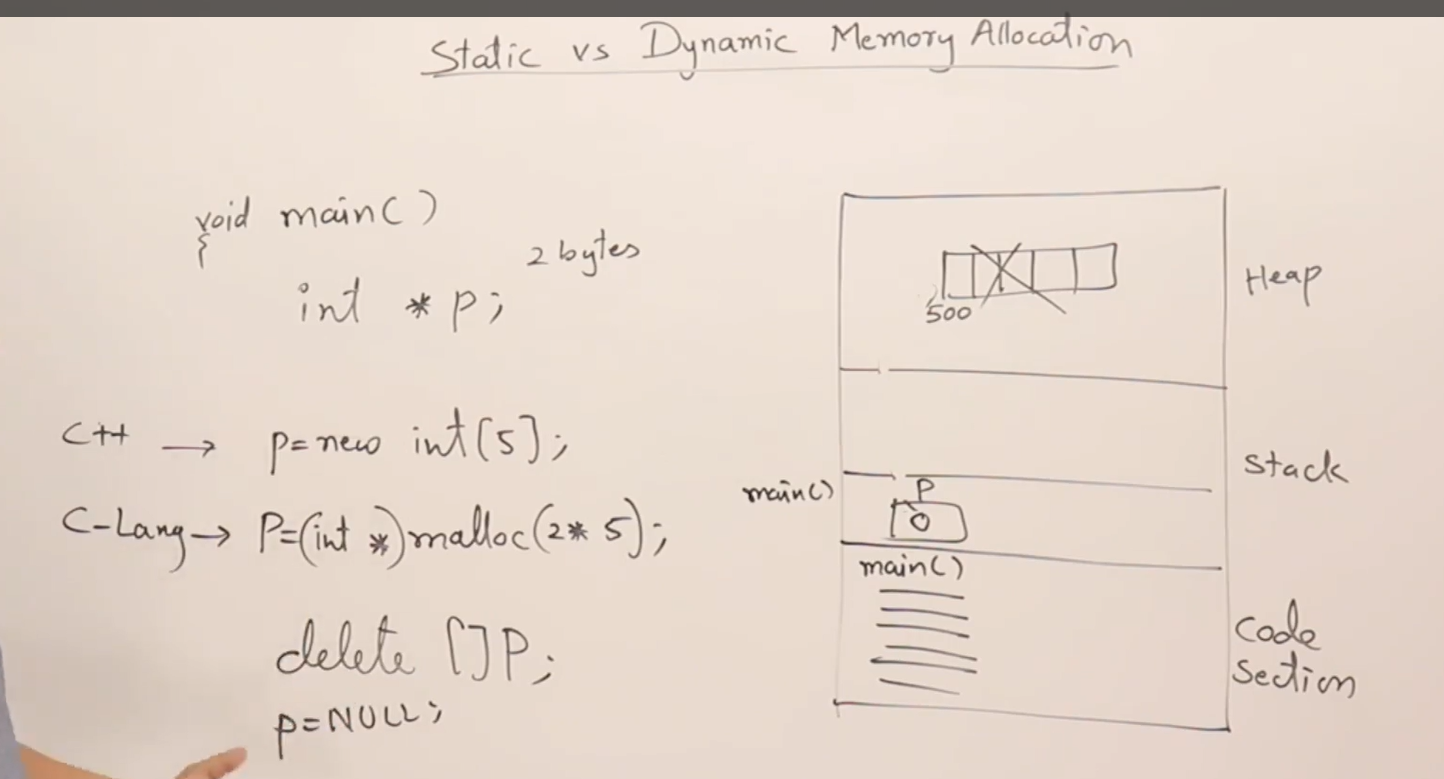 Static vs Dynamic Memory Allocation
void main()
{
2 bytes
int *p;
C++ → p=new int[5];
C-Lang → P=(int *)malloc(2* 5);
delete []P;
p=NULL;
500
Heap
Stack
main()
P
0
main()
Code
Section